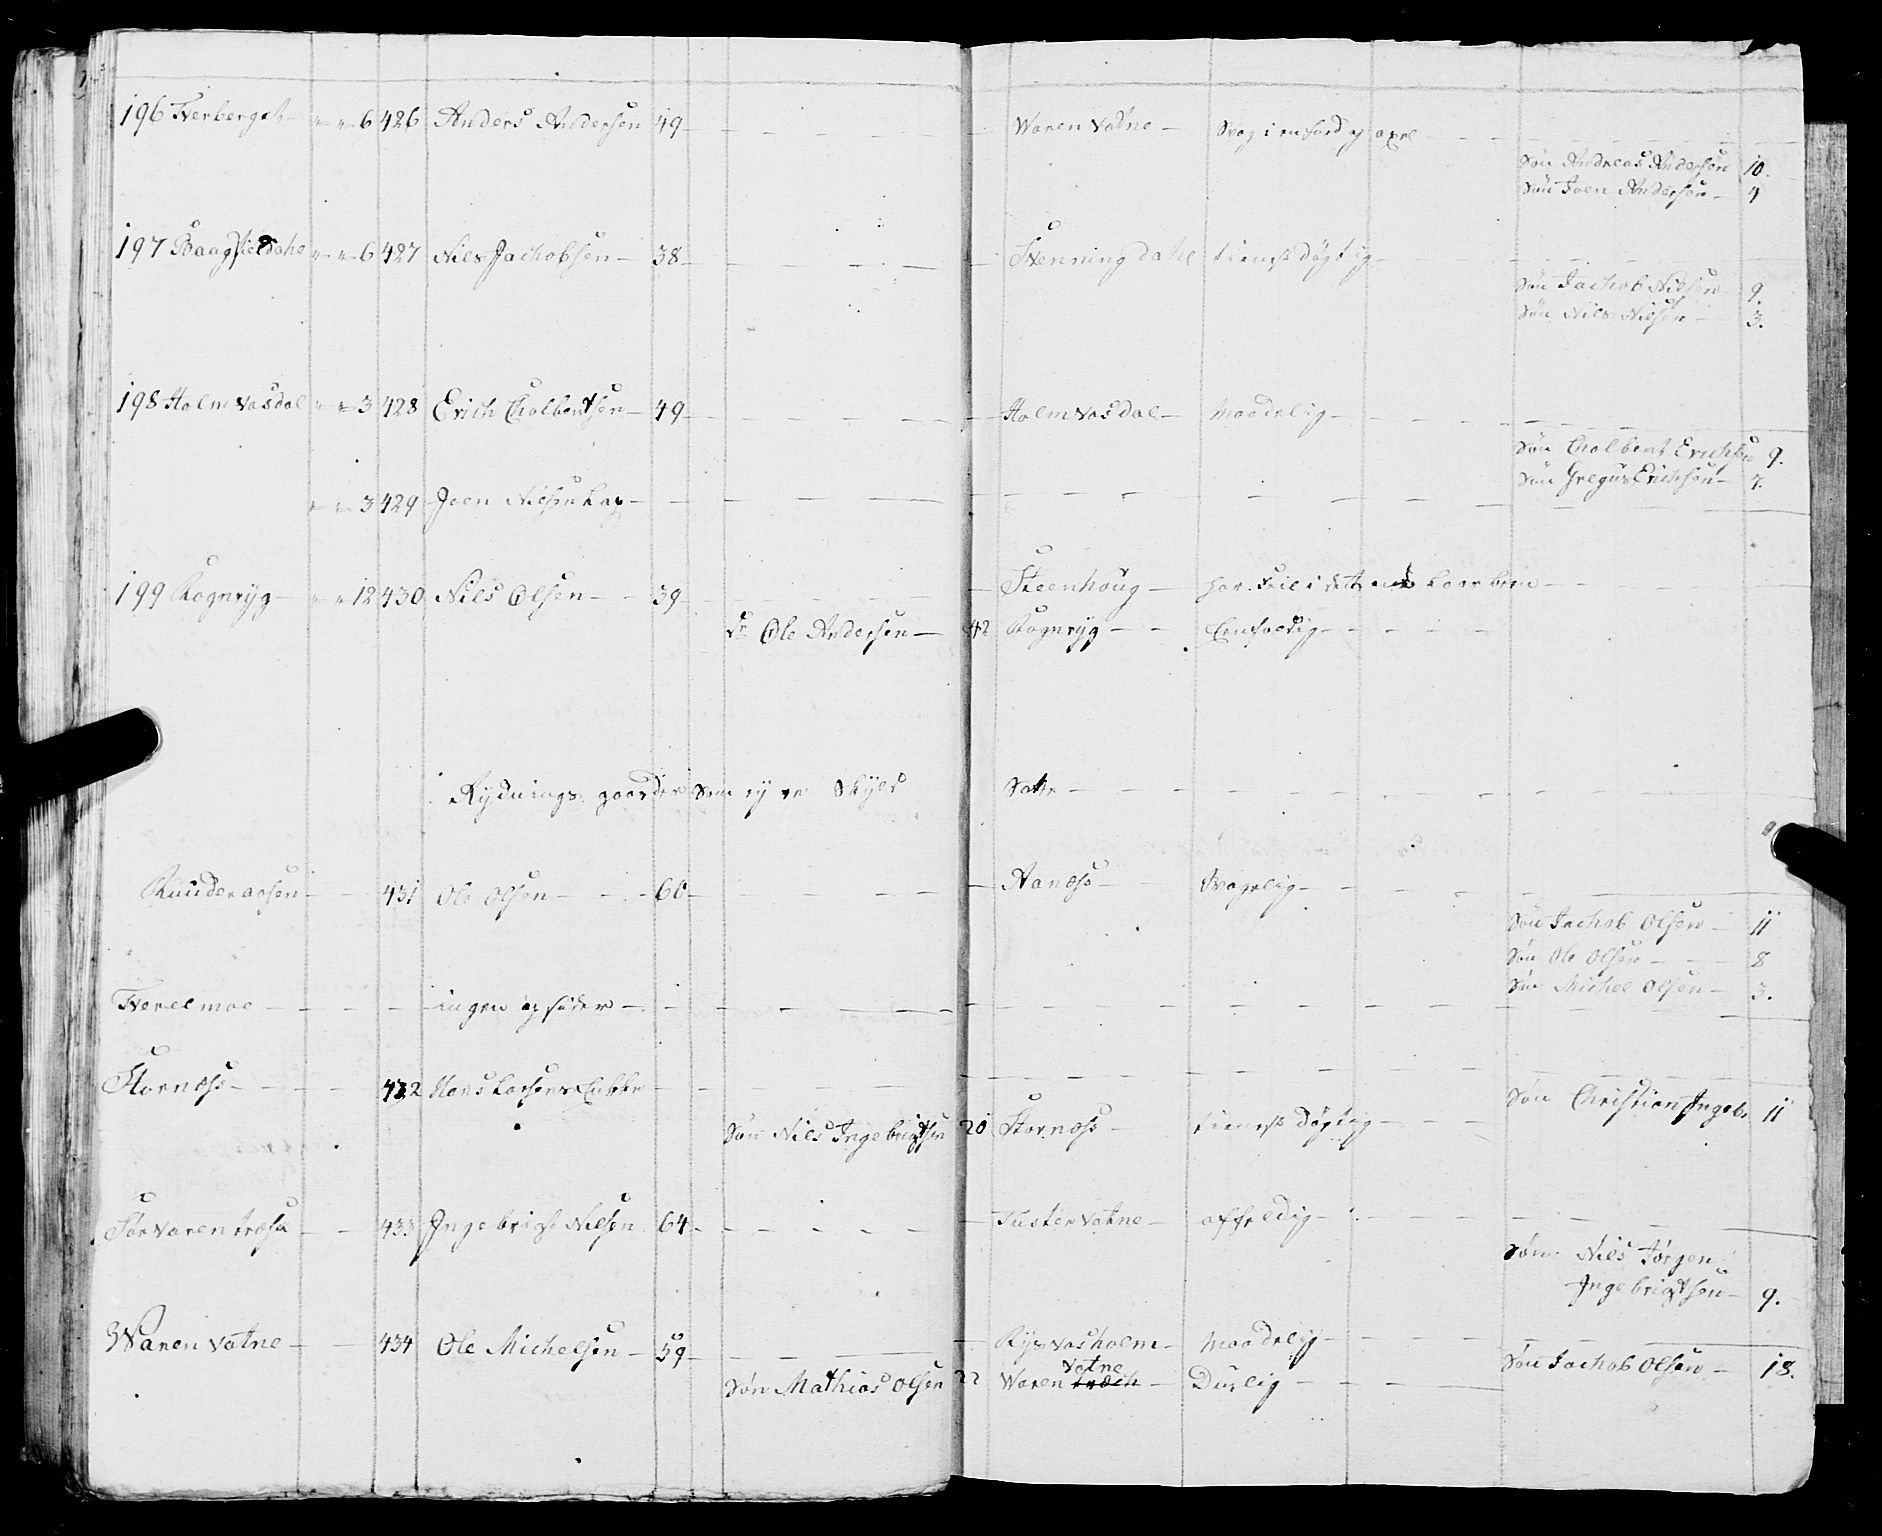 196 Tverberget — " " 6 426 Anders Andersen 49 — Waren Vatne — Svag i en food og axel
Søn Andreas Andersen 10.
Søn Joen Andersen — 4
197 Baagfieldahl " " 6 427 Niels Jachobsen — 38 — Stenning dahl tienst døgtig —
Søn Jachob Nilsen 9.
Søn Nils Nilsen — 3.
198 Holmvasdal " " 3 428 Erich Cholbentsen — 49 — Holmvasdal — Maadelig —
Søn Cholbent Erichsen 9.
Søn Gregus Erichsen — 7.
" " 3 429 Joen Nilsen Lap —
199 Rognryg — " " 12 430 Niels Olsen — 39 — Steenhoug — har Feil i det laar been —
Ole Andersen — 42 Rognryg — Eenfoldig —
Rydnings gaarder som ey er Skyld Satte —
Ruuderaasen — 431 Ole Olsen — 60 — Aanæss — Svagelig —
Søn Jachob Olsen — 11
Søn Ole Olsen — 8
Søn Michel Olsen — 3.
Tverelmoe — ingen opsider —
Stornæss — 432 Hans Larsens Enkke —
Søn Christian Ingebr 11
Søn Niels Ingebrigtsen 20 Stornæss — tienst Døgtig —
Sørvarentræsk — 433 Ingebrigt Nielsen 64 — Tustervatne — affældig —
Søn Niels Jørgen
Ingebrigtsen — 9.
Waren Vatne — 434 Ole Michelsen — 59 — Rysvasholm — Maadelig —
Søn Jachob Olsen — 18.
Vatne
Søn Mathias Olsen 22 Waren træsk — Duelig —